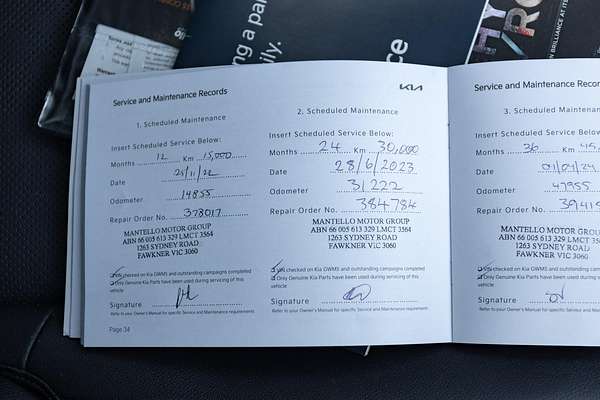 ng a pa
ily.
ce
HY
RO
N BRILLIANCE AT ITS
Service and Maintenance Records
1. Scheduled Maintenance
Insert Scheduled Service Below:
Months 12 Km 15,000
Date 25/11/22
Odometer 14855
Repair Order No. 378017
MANTELLO MOTOR GROUP
ABN 66 005 613 329 LMCT 3564
1263 SYDNEY ROAD
FAWKNER VIC 3060
VIN checked on Kia GWMS and outstanding campaigns completed
Only Genuine Kia Parts have been used during servicing of this
vehicle
Signature
Refer to your Owner's Manual for specific Service and Maintenance requirements
Page 34
KIA
2. Scheduled Maintenance
Insert Scheduled Service Below:
Months 24 Km 30,000
Date 28/6/2023
Odometer 31,222
Repair Order No. 384784
MANTELLO MOTOR GROUP
ABN 66 005 613 329 LMCT 3564
1263 SYDNEY ROAD
FAWKNER VIC 3060
VIN checked on Kia GWMS and outstanding campaigns completed
Only Genuine Kia Parts have been used during servicing of this
vehicle
Signature
Refer to your Owner's Manual for specific Service and Maintenance requirements
Service and Maintenance Reco
3. Scheduled Mainte
Insert Scheduled Service
Months 36 Km 45,
Date 01/04/24
Odometer 47955
Repair Order No. 39419
MANTELLO MOTOR G
ABN 66 005 613 329 LM
1263 SYDNEY RO
FAWKNER VIC
VIN checked on Kia GWMS and outstandi
Only Genuine Kia Parts have been used
vehicle
Signature
Refer to your Owner's Manual for specific Service an